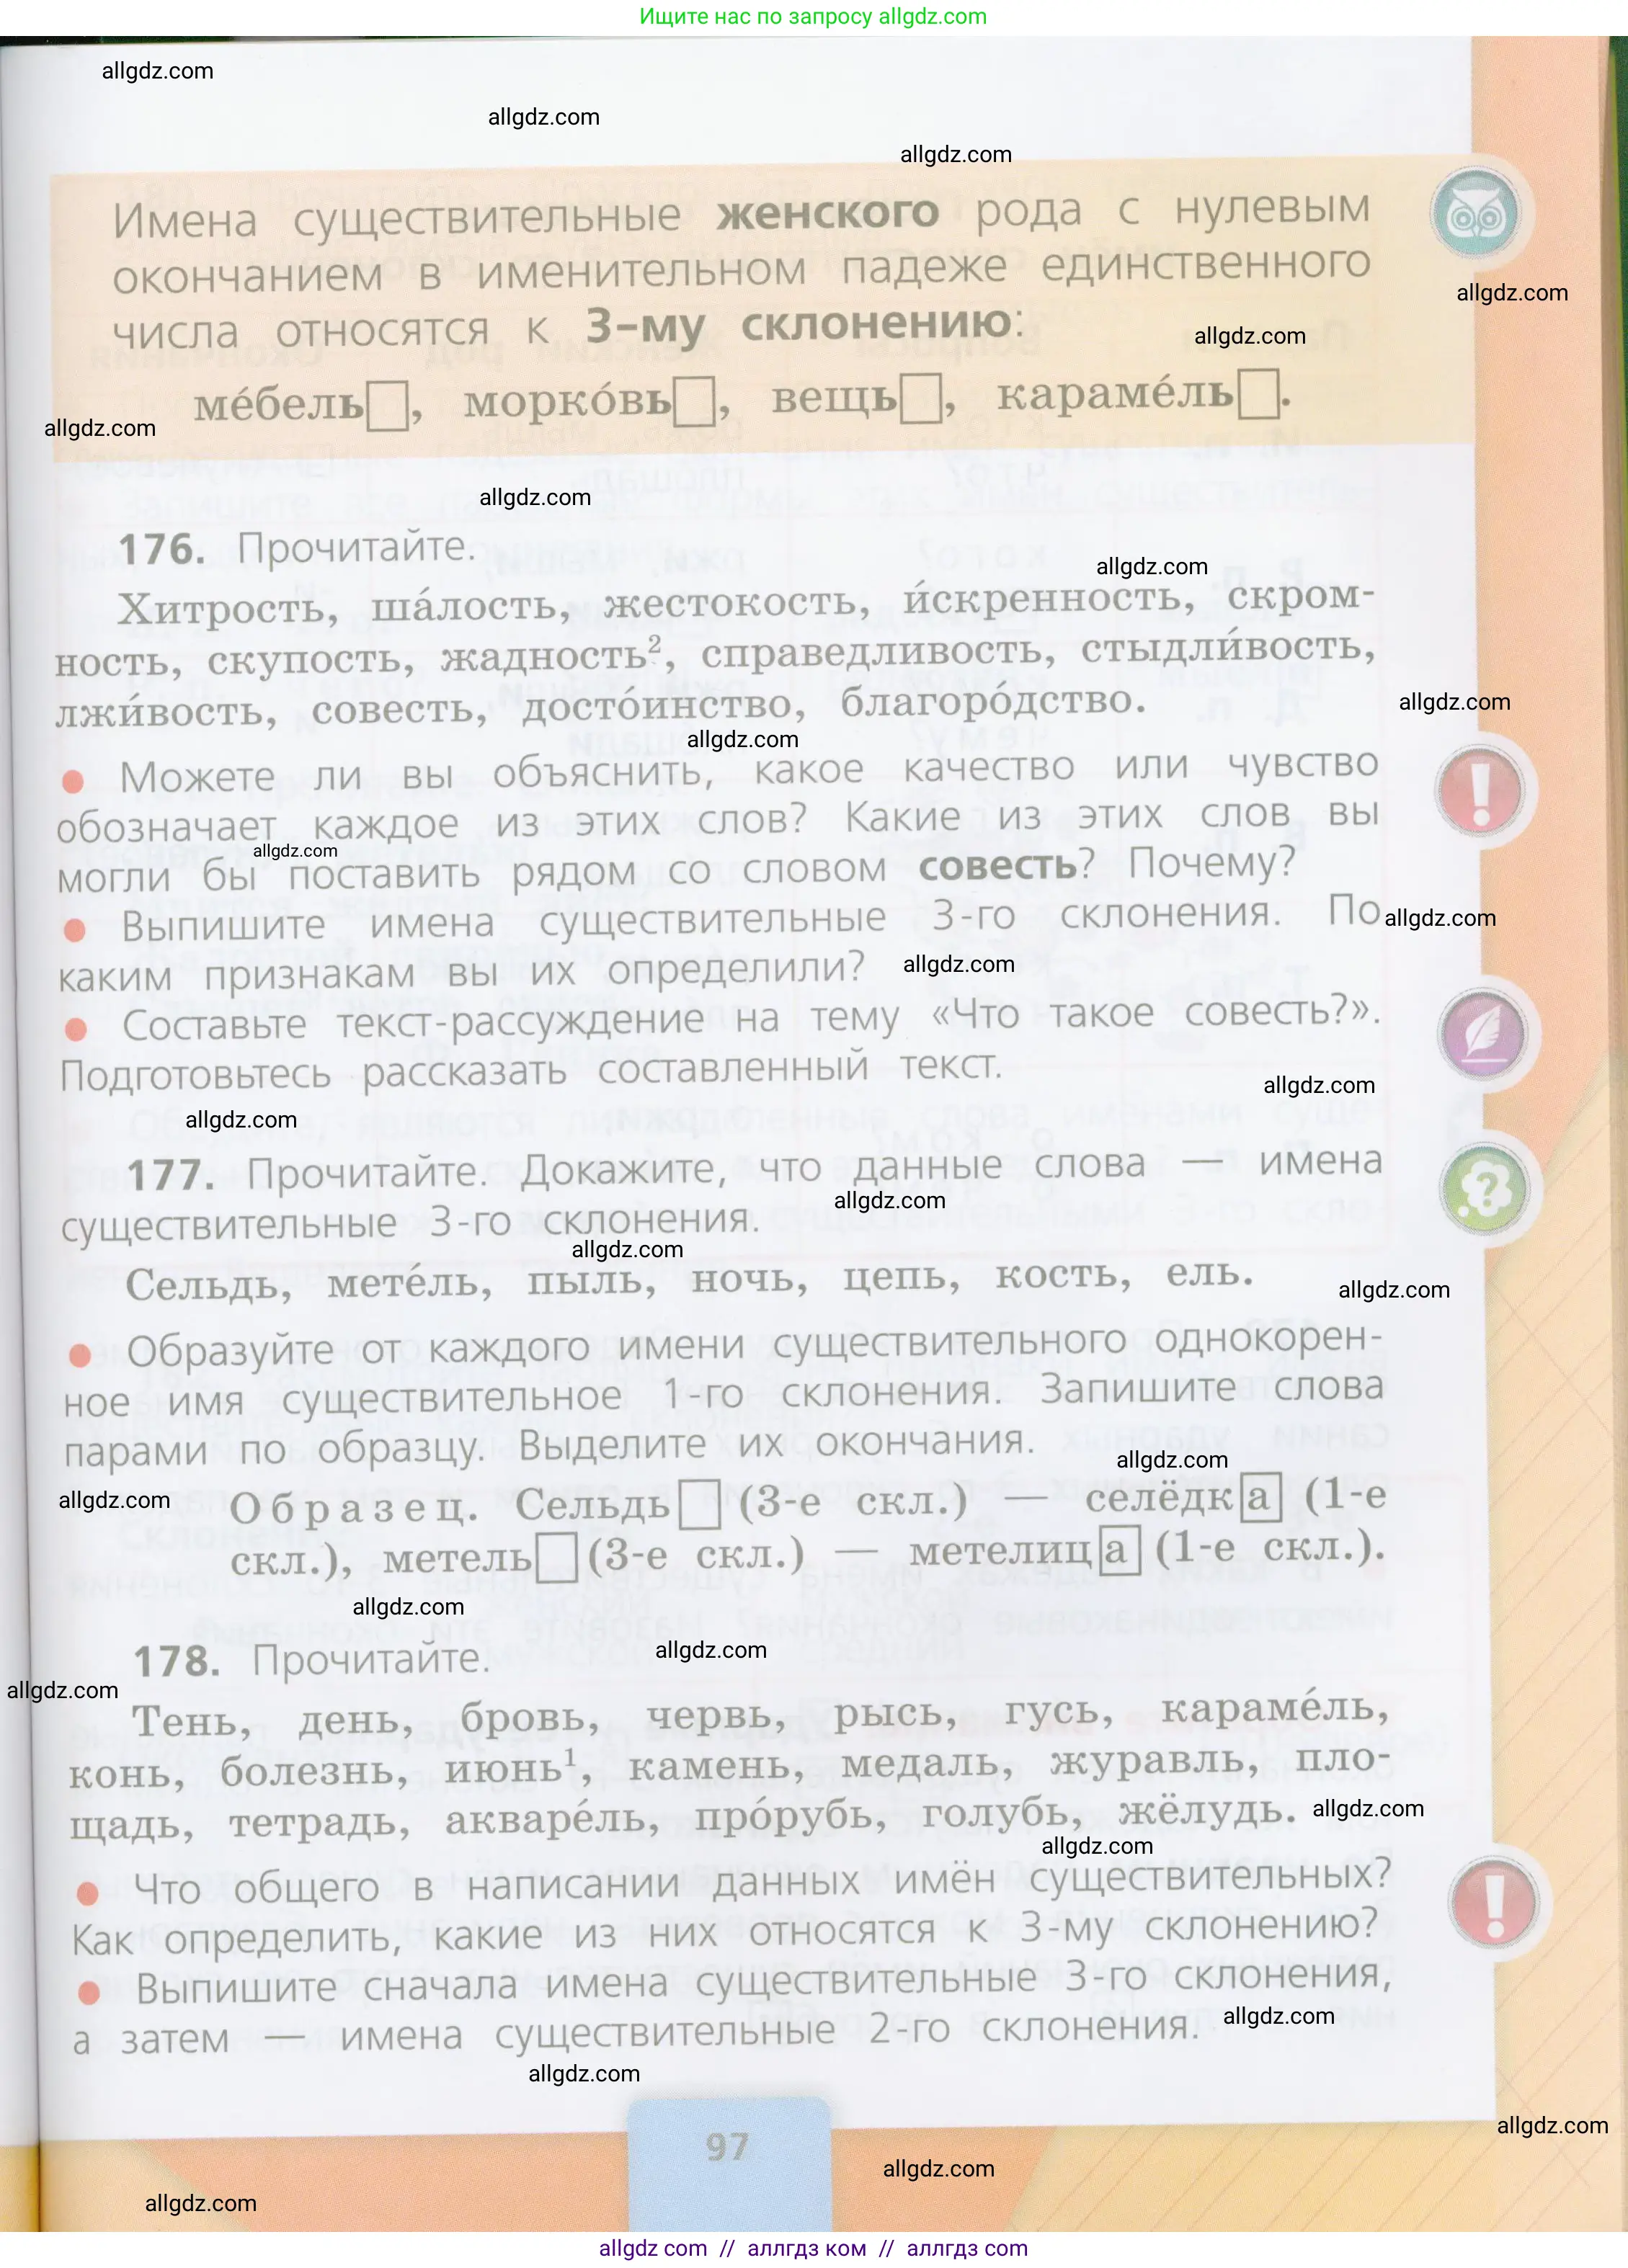 Ищите нас по запросу allgdz.com
allgdz.com
allgdz.com
allgdz.com
Имена существительные женского рода с нулевым
окончанием в именительном падеже единственного
allgdz.com
числа относятся к 3-му склонению:
allgdz.com
ме́бель, морко́вь, вещь, караме́ль.
allgdz.com
allgdz.com
176. Прочитайте.
allgdz.com
Хитрость, ша́лость, жестокость, и́скренность, скром-
ность, скупость, жадность², справедливость, стыдли́вость,
лжи́вость, совесть, досто́инство, благоро́дство.
allgdz.com
allgdz.com
• Можете ли вы объяснить, какое качество или чувство
обозначает каждое из этих слов? Какие из этих слов вы
allgdz.com
могли бы поставить рядом со словом совесть? Почему?
• Выпишите имена существительные 3-го склонения. По
allgdz.com
каким признакам вы их определили?
allgdz.com
• Составьте текст-рассуждение на тему «Что такое совесть?».
Подготовьтесь рассказать составленный текст.
allgdz.com
allgdz.com
177. Прочитайте. Докажите, что данные слова — имена
allgdz.com
существительные 3-го склонения.
allgdz.com
Сельдь, мете́ль, пыль, ночь, цепь, кость, ель.
allgdz.com
• Образуйте от каждого имени существительного однокорен-
ное имя существительное 1-го склонения. Запишите слова
парами по образцу. Выделите их окончания.
allgdz.com
allgdz.com
Образец. Сельдь (3-е скл.) — селёдка (1-е
скл.), метель (3-е скл.) — метелица (1-е скл.).
allgdz.com
178. Прочитайте.
allgdz.com
allgdz.com
Тень, день, бровь, червь, рысь, гусь, караме́ль,
конь, болезнь, июнь¹, камень, медаль, журавль, пло-
щадь, тетрадь, акваре́ль, про́рубь, голубь, жёлудь.
allgdz.com
allgdz.com
• Что общего в написании данных имён существительных?
Как определить, какие из них относятся к 3-му склонению?
• Выпишите сначала имена существительные 3-го склонения,
а затем — имена существительные 2-го склонения.
allgdz.com
allgdz.com
97
allgdz.com
allgdz.com
allgdz.com
allgdz com // аллгдз ком // аллгдз com